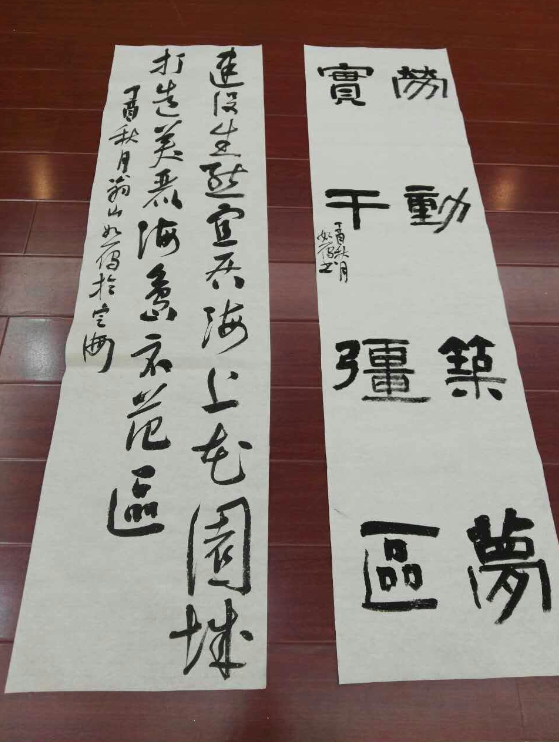 勞動築夢
實干彊區
丁酉秋月
如書
建設生態宜居海上花園城
打造美麗海島示范區
丁酉秋月翁山如於定海